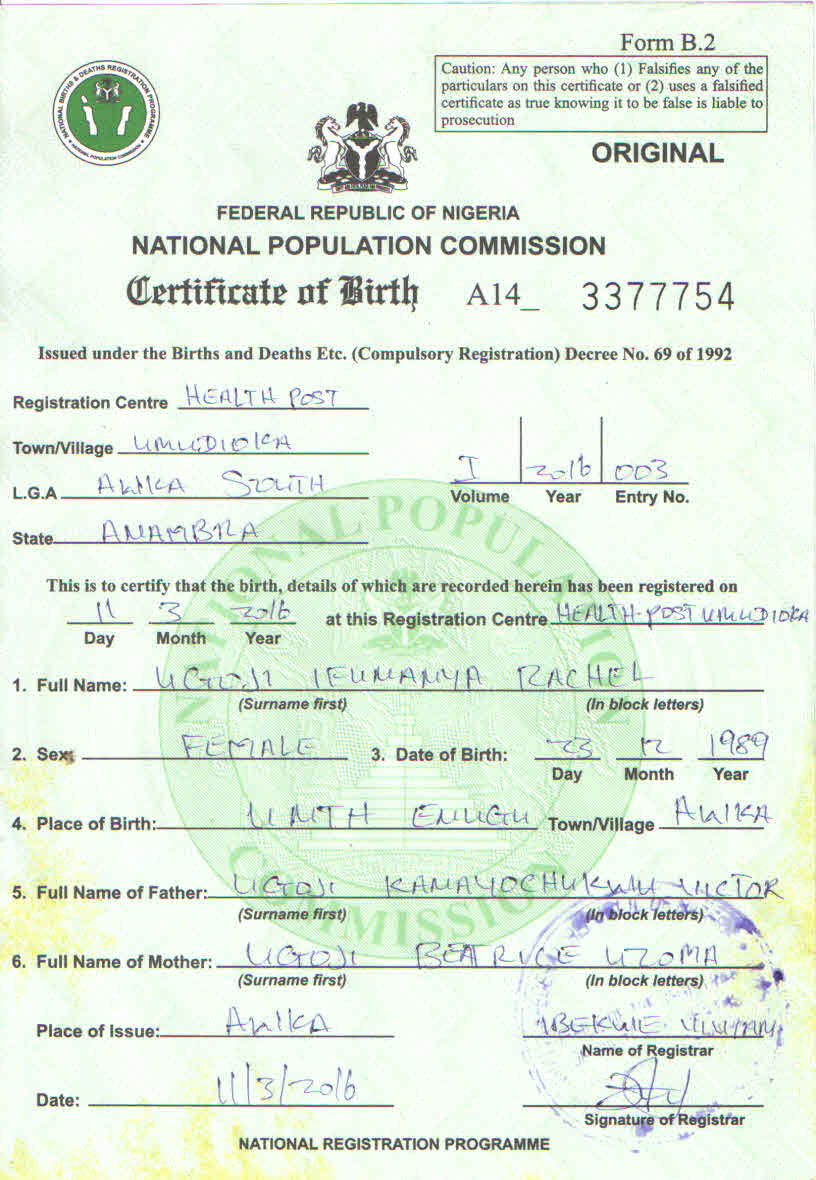 Form B.2
Caution: Any person who (1) Falsifies any of the
particulars on this certificate or (2) uses a falsified
certificate as true knowing it to be false is liable to
prosecution
NATIONAL BIRTHS & DEATHS REGISTRATION PROGRAMME
NATIONAL POPULATION COMMISSION
ORIGINAL
FEDERAL REPUBLIC OF NIGERIA
NATIONAL POPULATION COMMISSION
Certificate of Birth A14_ 3377754
Issued under the Births and Deaths Etc. (Compulsory Registration) Decree No. 69 of 1992
Registration Centre HEALTH POST
Town/Village UMUDIOKA
L.G.A AWKA SOUTH
I 2016 003
Volume Year Entry No.
State ANAMBRA
NATIONAL POPULATION COMMISSION
This is to certify that the birth, details of which are recorded herein has been registered on
11 3 2016 at this Registration Centre HEALTH POST UMUDIOKA
Day Month Year
1. Full Name: UGOJI IFUNANYA RACHEL
(Surname first) (In block letters)
2. Sex: FEMALE 3. Date of Birth: 23 12 1989
Day Month Year
4. Place of Birth: UNTH ENUGU Town/Village AWKA
5. Full Name of Father: UGOJI KANAYOCHUKWU VICTOR
(Surname first) (In block letters)
6. Full Name of Mother: UGOJI BEATRICE UZOMA
(Surname first) (In block letters)
Place of Issue: AWKA IBEKWE
Name of Registrar
Date: 11/3/2016
Signature of Registrar
NATIONAL REGISTRATION PROGRAMME